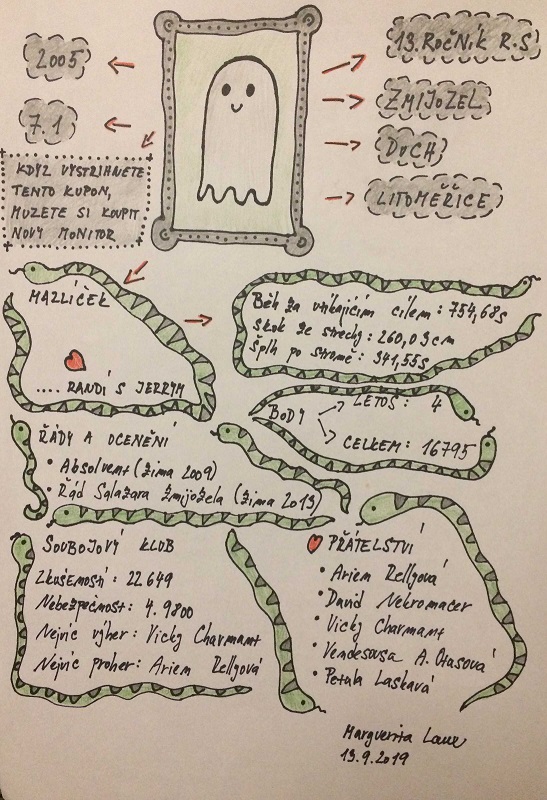 2005
7.1
KDYŽ VYSTŘIHNETE
TENTO KUPON,
MŮŽETE SI KOUPIT
NOVÝ MONITOR
13. ROČNÍK R.S
ZMIJOZEL
DUCH
LITOMĚŘICE
MAZLÍČEK
.... RANDÍ S JERRYM
Běh za unikajícím cílem: 754,68s
Skok ze střechy: 260,03cm
Šplh po stromě: 341,55s
BODY
LETOS: 4
CELKEM: 16795
ŘÁDY A OCENĚNÍ
• Absolvent (zima 2009)
• Řád Salazara Zmijozela (zima 2013)
SOUBOJOVÝ KLUB
Zkušenosti: 22649
Nebezpečnost: 4.9800
Nejvíc výher: Vicky Charmant
Nejvíc proher: Ariem Rellgová
PŘÁTELSTVÍ
• Ariem Rellgová
• David Nekromacer
• Vicky Charmant
• Vendesusa A. Otasová
• Petula Laskavá
Marguerita Laux
13.9.2019